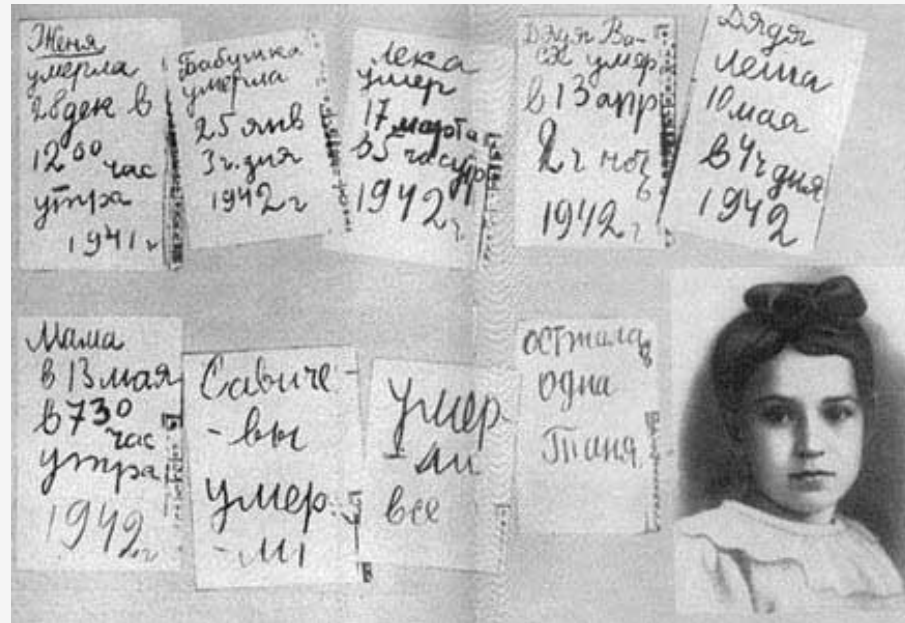 Женя
умерла
28 дек в
12 00 час
утра
1941 г
Бабушка
умерла
25 янв
3 ч. дня
1942 г
Лека
умер
17 марта
в 5 час утр
1942 г.
Дядя Ва-
ся умер
в 13 апр
2 ч ноч
1942 г
Дядя
Леша
10 мая
в 4 ч дня
1942
Мама
в 13 мая
в 7 30
час
утра
1942 г.
Савиче-
-вы
умер
-ли
Умер
-ли
все
Осталась
одна
Таня